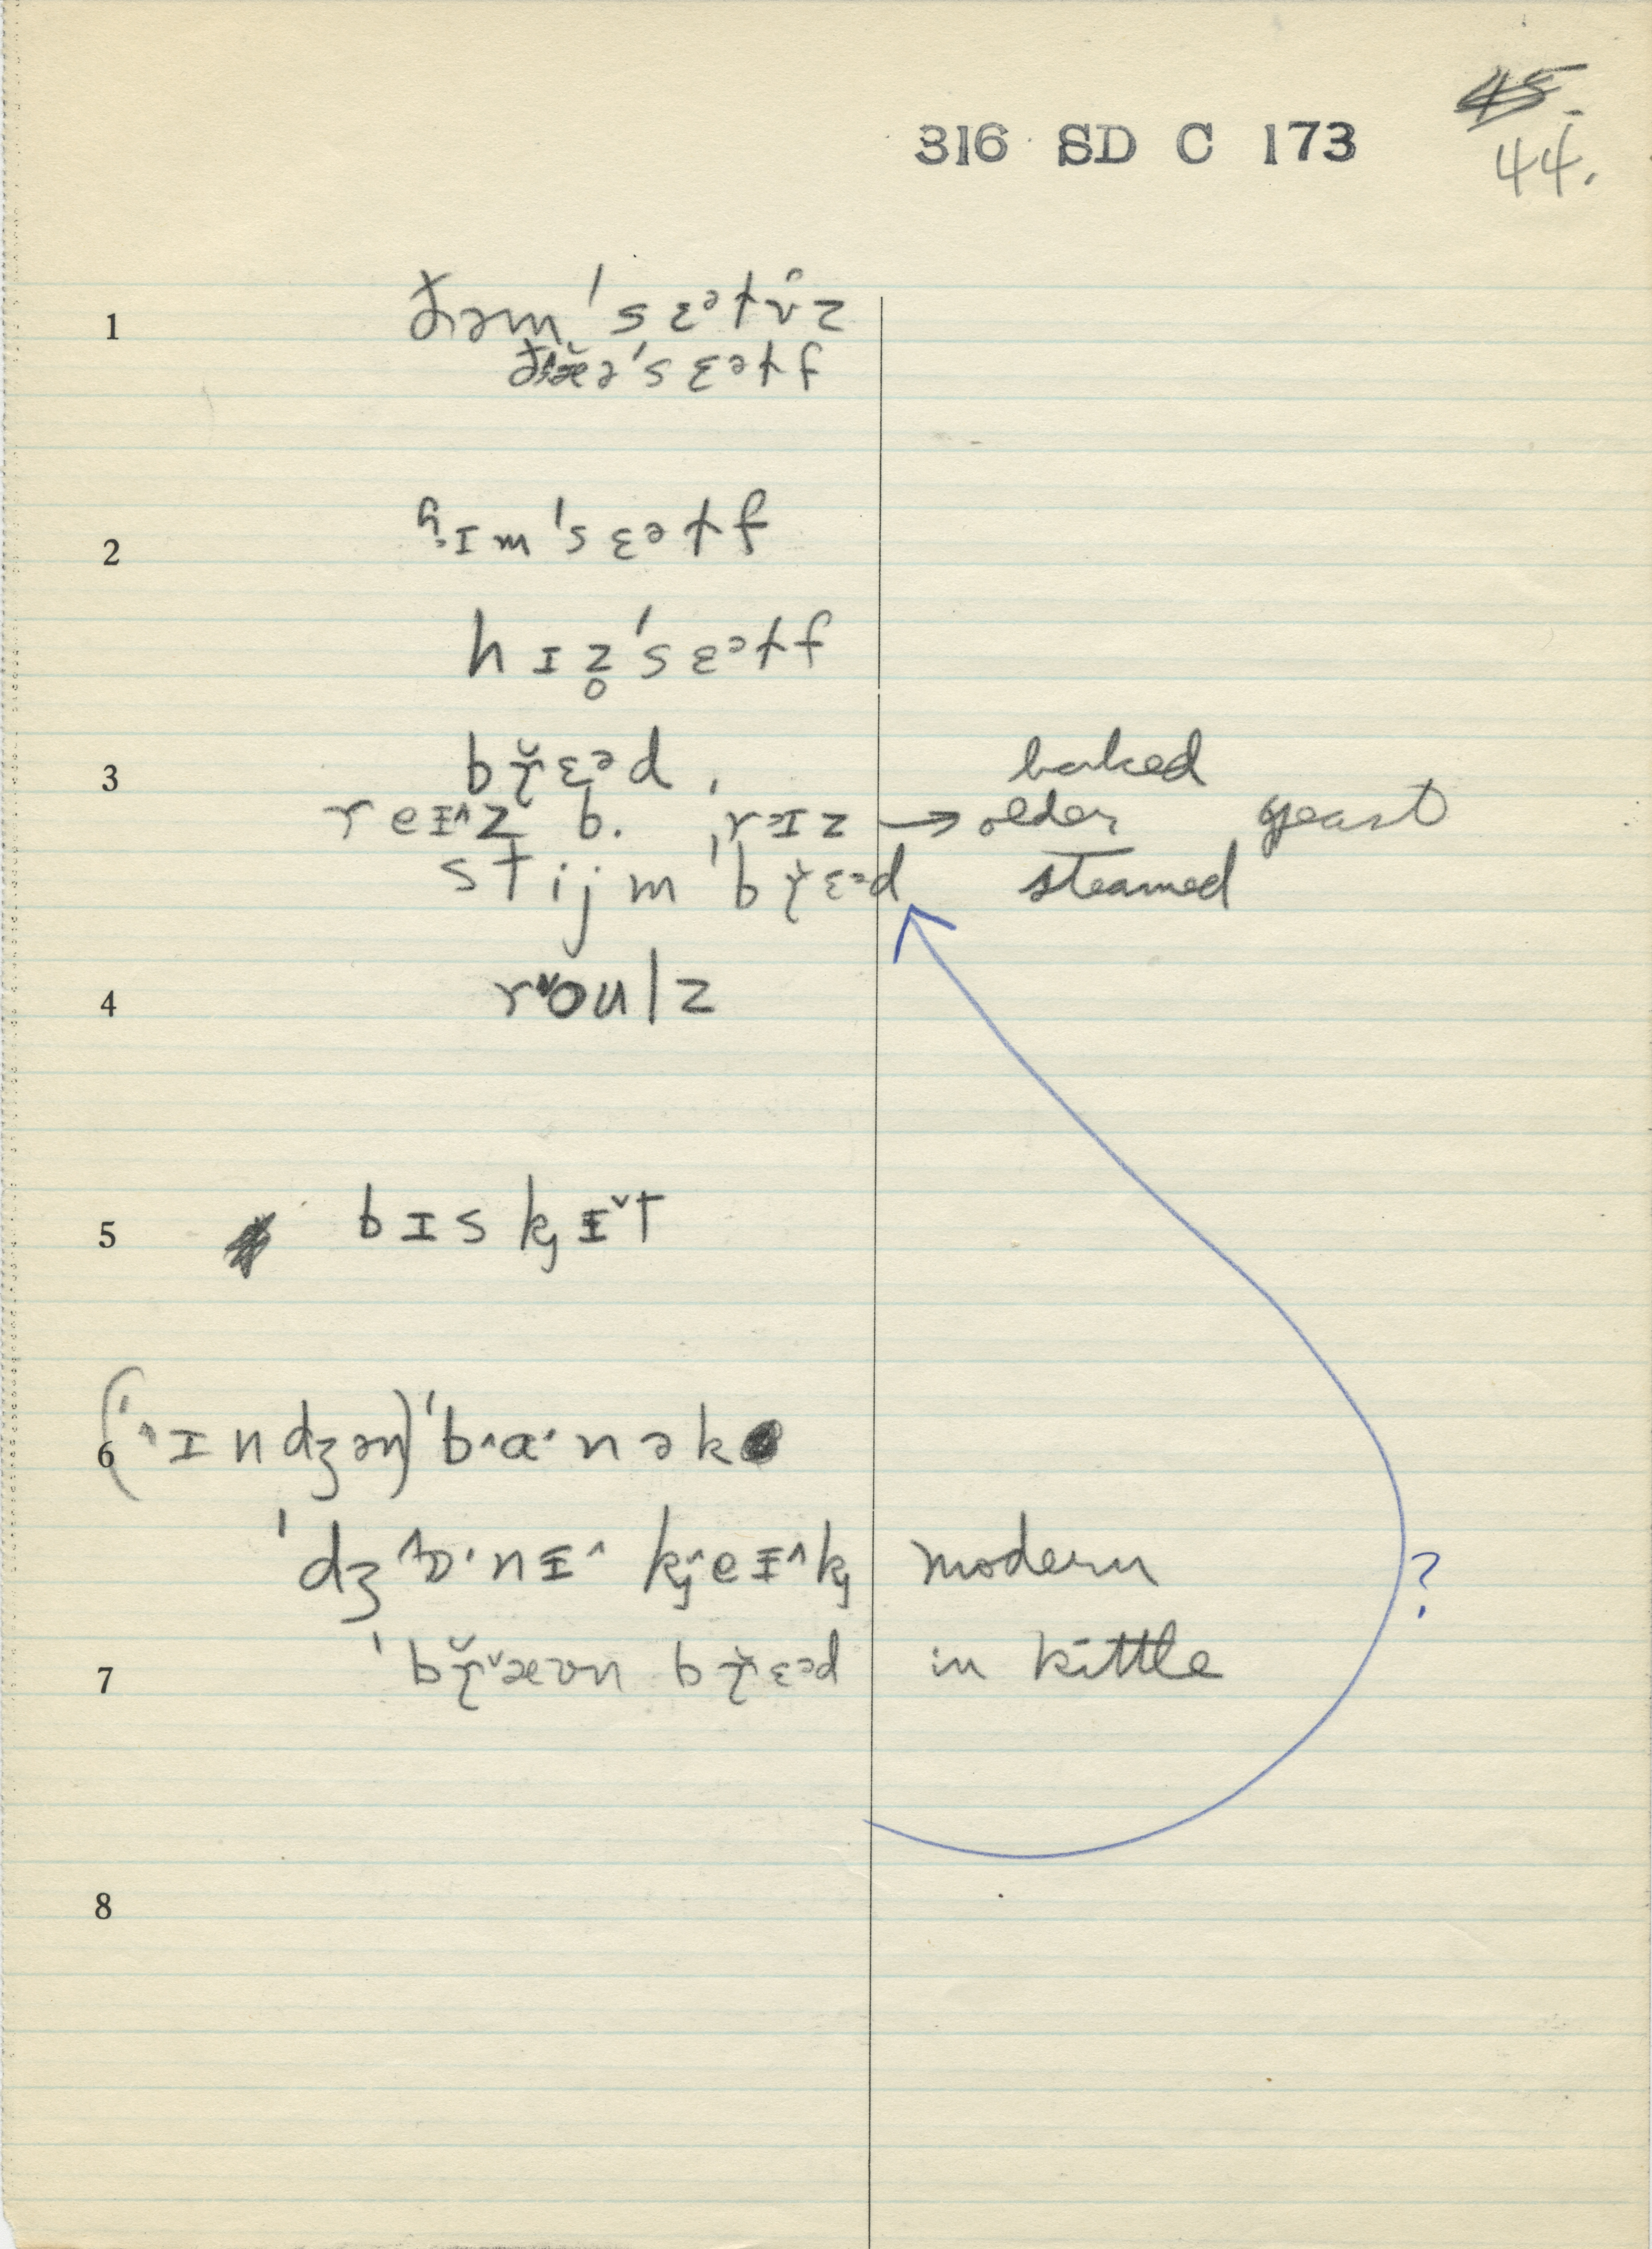 45.
316 SD C 173
44.
1 ðəm'sɛᵊɫv̂z
ðæə'sɛᵊɫf
2 ʱɪm'sɛᵊɫf
hɪz̥'sɛᵊɫf
3 bɽ̆ɛᵊd, baked
reɪ^z b. ,rɪz → older yeast
stijm 'bɽ̆ɛᵊd steamed
4 r oulz
5 bɪskj ɪˇt
6 ('^ɪndʒən) 'b^ɑ·nək
'dʒ^ɒ·nɪ^ kj^eɪ^kj modern
?
7 'bɽ̆ˇæʊn bɽ̆ɛᵊd in kittle
8